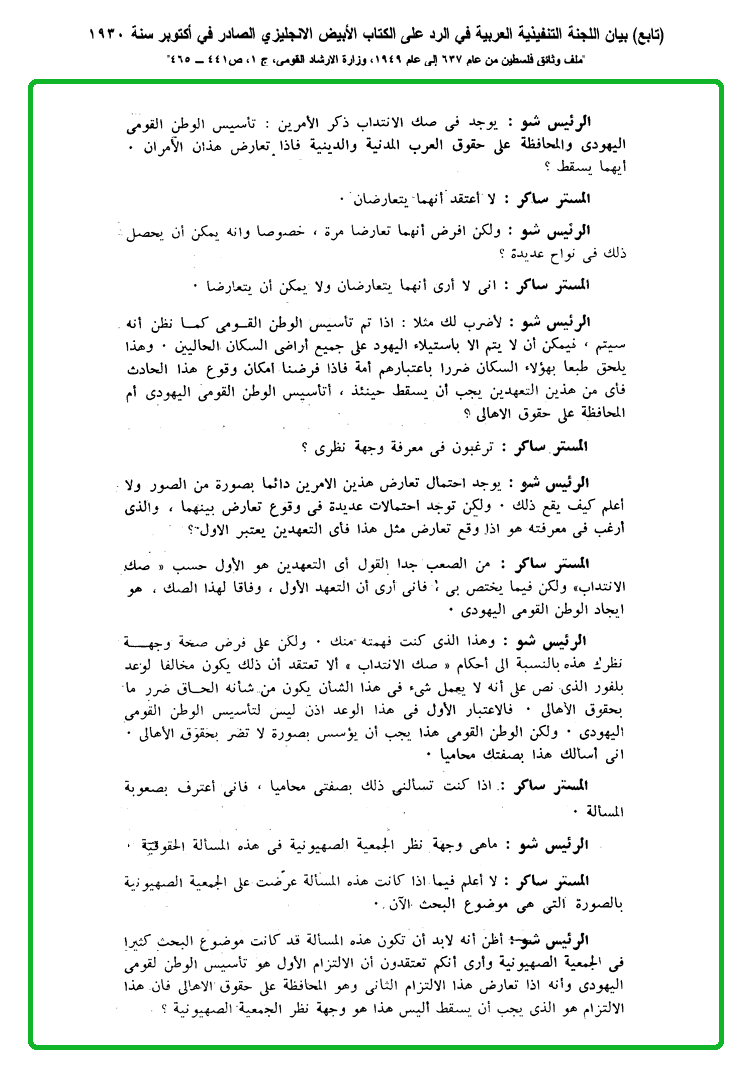 (تابع) بيان اللجنة التنفيذية العربية في الرد على الكتاب الأبيض الانجليزي الصادر في أكتوبر سنة ١٩٣٠
"ملف وثائق فلسطين من عام ٦٣٧ إلى عام ١٩٤٩، وزارة الارشاد القومى، ج ١، ص٤٤١ ــ ٤٦٥"
الرئيس شو : يوجد فى صك الانتداب ذكر الأمرين : تأسيس الوطن القومى
اليهودى والمحافظة على حقوق العرب المدنية والدينية فاذا تعارض هذان الأمران ٠
أيهما يسقط ؟
المستر ساكر : لا أعتقد أنهما يتعارضان ٠
الرئيس شو : ولكن افرض أنهما تعارضا مرة ، خصوصا وانه يمكن أن يحصل
ذلك فى نواح عديدة ؟
المستر ساكر : انى لا أرى أنهما يتعارضان ولا يمكن أن يتعارضا ٠
الرئيس شو : لأضرب لك مثلا : اذا تم تأسيس الوطن القـومى كمـا نظن أنه
سيتم ، فيمكن أن لا يتم الا باستيلاء اليهود على جميع أراضى السكان الحاليين ٠ وهذا
يلحق طبعا بهؤلاء السكان ضررا باعتبارهم أمة فاذا فرضنا امكان وقوع هذا الحادث
فأى من هذين التعهدين يجب أن يسقط حينئذ ، أتأسيس الوطن القومى اليهودى أم
المحافظة على حقوق الاهالى ؟
المستر ساكر : ترغبون فى معرفة وجهة نظرى ؟
الرئيس شو : يوجد احتمال تعارض هذين الامرين دائما بصورة من الصور ولا
أعلم كيف يقع ذلك ٠ ولكن توجد احتمالات عديدة فى وقوع تعارض بينهما ، والذى
أرغب فى معرفته هو اذا وقع تعارض مثل هذا فأى التعهدين يعتبر الاول ؟
المستر ساكر : من الصعب جدا القول أى التعهدين هو الأول حسب « صك
الانتداب» ولكن فيما يختص بى ؛ فانى أرى أن التعهد الأول ، وفاقا لهذا الصك ، هو
ايجاد الوطن القومى اليهودى ٠
الرئيس شو : وهذا الذى كنت فهمته منك ٠ ولكن على فرض صحة وجهـــة
نظرك هذه بالنسبة الى أحكام « صك الانتداب » ألا تعتقد أن ذلك يكون مخالفا لوعد
بلفور الذى نص على أنه لا يعمل شىء فى هذا الشأن يكون من شأنه الحـاق ضرر ما
بحقوق الأهالى ٠ فالاعتبار الأول فى هذا الوعد اذن ليس لتأسيس الوطن القومى
اليهودى ٠ ولكن الوطن القومى هذا يجب أن يؤسس بصورة لا تضر بحقوق الأهالى ٠
انى أسالك هذا بصفتك محاميا ٠
المستر ساكر : اذا كنت تسألنى ذلك بصفتى محاميا ، فانى أعترف بصعوبة
المسألة ٠
الرئيس شو : ماهى وجهة نظر الجمعية الصهيونية فى هذه المسألة الحقوقية ٠
المستر ساكر : لا أعلم فيما اذا كانت هذه المسألة عرّضت على الجمعية الصهيونية
بالصورة التى هى موضوع البحث الآن ٠
الرئيس شو : أظن أنه لابد أن تكون هذه المسألة قد كانت موضوع البحث كثيرا
فى الجمعية الصهيونية وأرى أنكم تعتقدون أن الالتزام الأول هو تأسيس الوطن لقومى
اليهودى وأنه اذا تعارض هذا الالتزام الثانى وهو المحافظة على حقوق الاهالى فان هذا
الالتزام هو الذى يجب أن يسقط أليس هذا هو وجهة نظر الجمعية الصهيونية ؟